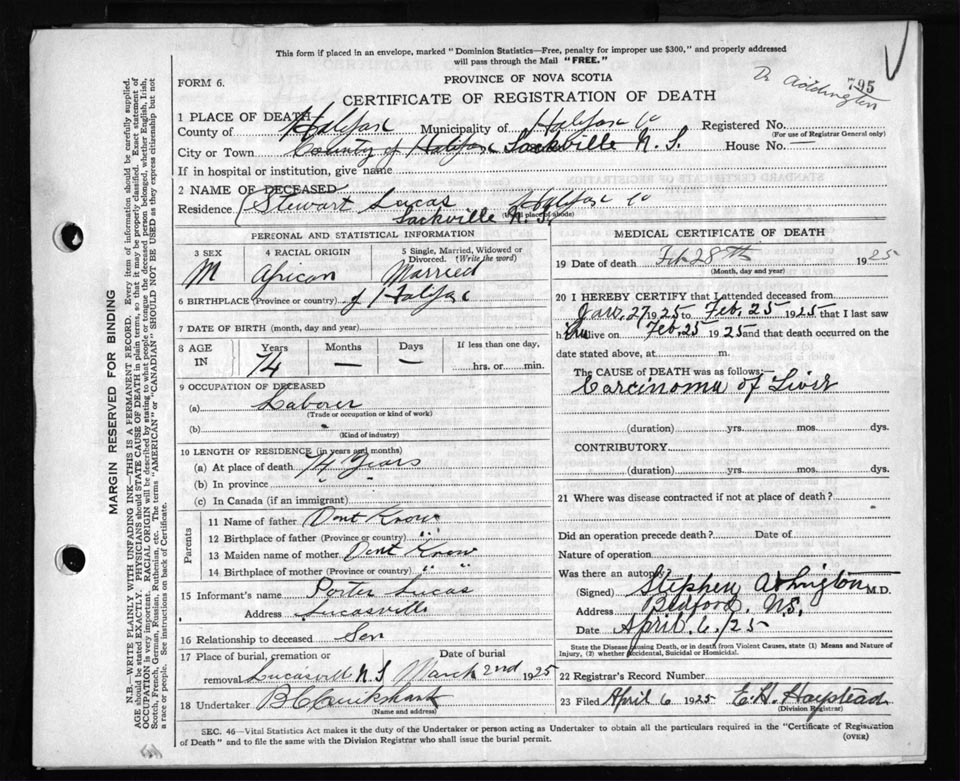 This form if placed in an envelope, marked "Dominion Statistics—Free, penalty for improper use $300," and properly addressed
will pass through the Mail "FREE."
PROVINCE OF NOVA SCOTIA
FORM 6.
795
Dr Addington
CERTIFICATE OF REGISTRATION OF DEATH
1 PLACE OF DEATH
County of Halifax Municipality of Halifax Co Registered No.
(For use of Registrar General only)
City or Town County of Halifax Sackville N.S. House No. —
If in hospital or institution, give name
2 NAME OF DECEASED
Residence Stewart Lucas Halifax Co
Sackville N.S.
PERSONAL AND STATISTICAL INFORMATION
3 SEX 4 RACIAL ORIGIN 5 Single, Married, Widowed or Divorced. (Write the word)
M African Married
6 BIRTHPLACE (Province or country) of Halifax
7 DATE OF BIRTH (month, day and year)
8 AGE IN Years Months Days If less than one day,
74 — — hrs. or min.
9 OCCUPATION OF DECEASED
(a) Laborer
(Trade or occupation or kind of work)
(b)
(Kind of industry)
10 LENGTH OF RESIDENCE (in years and months)
(a) At place of death 74 years
(b) In province " "
(c) In Canada (if an immigrant)
Parents
11 Name of father Dont Know
12 Birthplace of father (Province or country) " "
13 Maiden name of mother Dont Know
14 Birthplace of mother (Province or country) " "
15 Informant's name Porter Lucas
Address Lucasville
16 Relationship to deceased Son
17 Place of burial, cremation or Date of burial
removal Lucasvill N.S March 2nd 1925
18 Undertaker
(Name and address)
MEDICAL CERTIFICATE OF DEATH
19 Date of death Feb 28th 1925
(Month, day and year)
20 I HEREBY CERTIFY that I attended deceased from
Jan. 27 1925 to Feb. 25 1925 that I last saw
him alive on Feb. 25 1925 and that death occurred on the
date stated above, at m.
The CAUSE of DEATH was as follows:—
Carcinoma of Liver
(duration) yrs. mos. dys.
CONTRIBUTORY
(duration) yrs. mos. dys.
21 Where was disease contracted if not at place of death?
Did an operation precede death? Date of
Nature of operation
Was there an autopsy
(Signed) Stephen Addington M.D.
Address Bedford, N.S.
Date April. 6./25
State the Disease causing Death, or in death from Violent Causes, state (1) Means and Nature of
Injury, (2) whether Accidental, Suicidal or Homicidal.
22 Registrar's Record Number
23 Filed April 6 1925 E.H. Haystead
(Division Registrar)
SEC. 46—Vital Statistics Act makes it the duty of the Undertaker or person acting as Undertaker to obtain all the particulars required in the "Certificate of Registration
of Death" and to file the same with the Division Registrar who shall issue the burial permit.
(OVER)
MARGIN RESERVED FOR BINDING
N.B.—WRITE PLAINLY WITH UNFADING INK—THIS IS A PERMANENT RECORD. Every item of information should be carefully supplied.
AGE should be stated EXACTLY. PHYSICIANS should STATE CAUSE OF DEATH in plain terms, so that it may be properly classified. Exact statement of
OCCUPATION is very important. RACIAL ORIGIN will be described by stating to what people or tongue the deceased person belonged, whether English, Irish,
Scotch, French, German, Russian, Ruthenian, etc. The terms "AMERICAN" or "CANADIAN" SHOULD NOT BE USED as they express citizenship but not
a race or people. See instructions on back of Certificate.